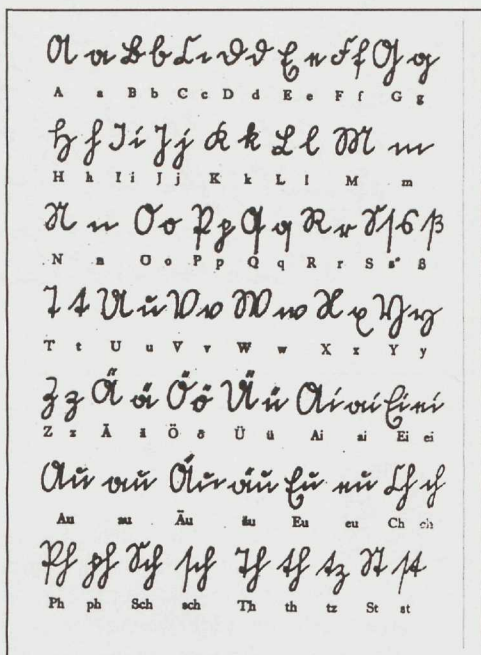 A a B b C c D d E e F f G g
A a B b C c D d E e F f G g
H h I i J j K k L l M m
H h I i J j K k L l M m
N n O o P p Q q R r S ſ s ß
N n O o P p Q q R r S s ß
T t U u V v W w X x Y y
T t U u V v W w X x Y y
Z z Ä ä Ö ö Ü ü Ai ai Ei ei
Z z Ä ä Ö ö Ü ü Ai ai Ei ei
Au au Äu äu Eu eu Ch ch
Au au Äu äu Eu eu Ch ch
Ph ph Sch sch Th th tz St st
Ph ph Sch sch Th th tz St st